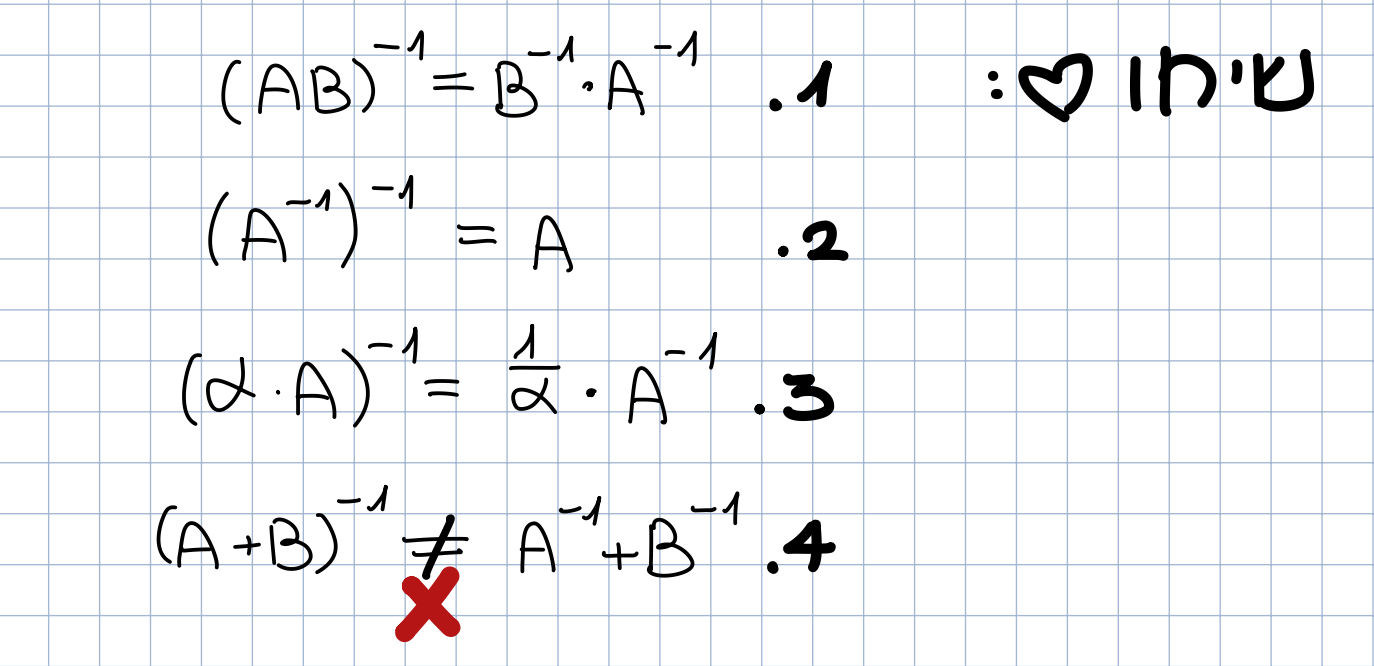 שימו ♡: 1. (AB)⁻¹ = B⁻¹·A⁻¹
2. (A⁻¹)⁻¹ = A
3. (α·A)⁻¹ = 1/α · A⁻¹
4. (A+B)⁻¹ ≠ A⁻¹+B⁻¹